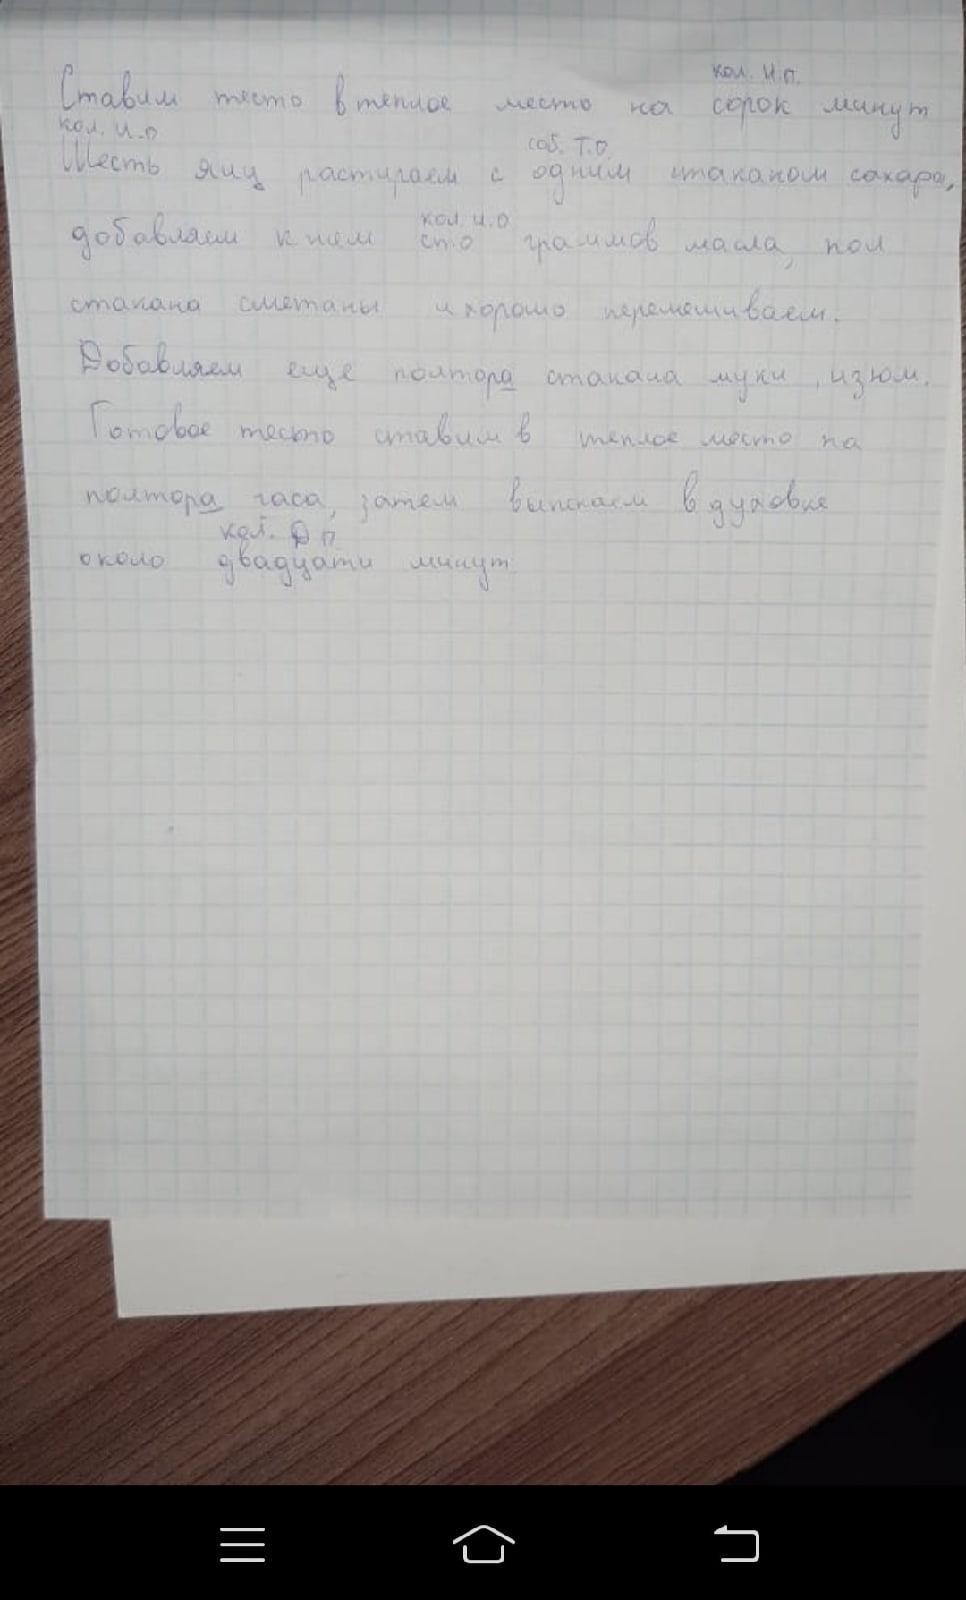 кол. И.п.
Ставим тесто в теплое место на сорок минут
кол. и.п
Шесть яиц растираем с одним стаканом сахара,
соб. Т.П.
добавляем к ним сто граммов масла, пол
кол. и.п
стакана сметаны и хорошо перемешиваем.
Добавляем еще полтора стакана муки, изюм.
Готовое тесто ставим в теплое место на
полтора часа, затем выпекаем в духовке
кол. Д п
около двадцати минут